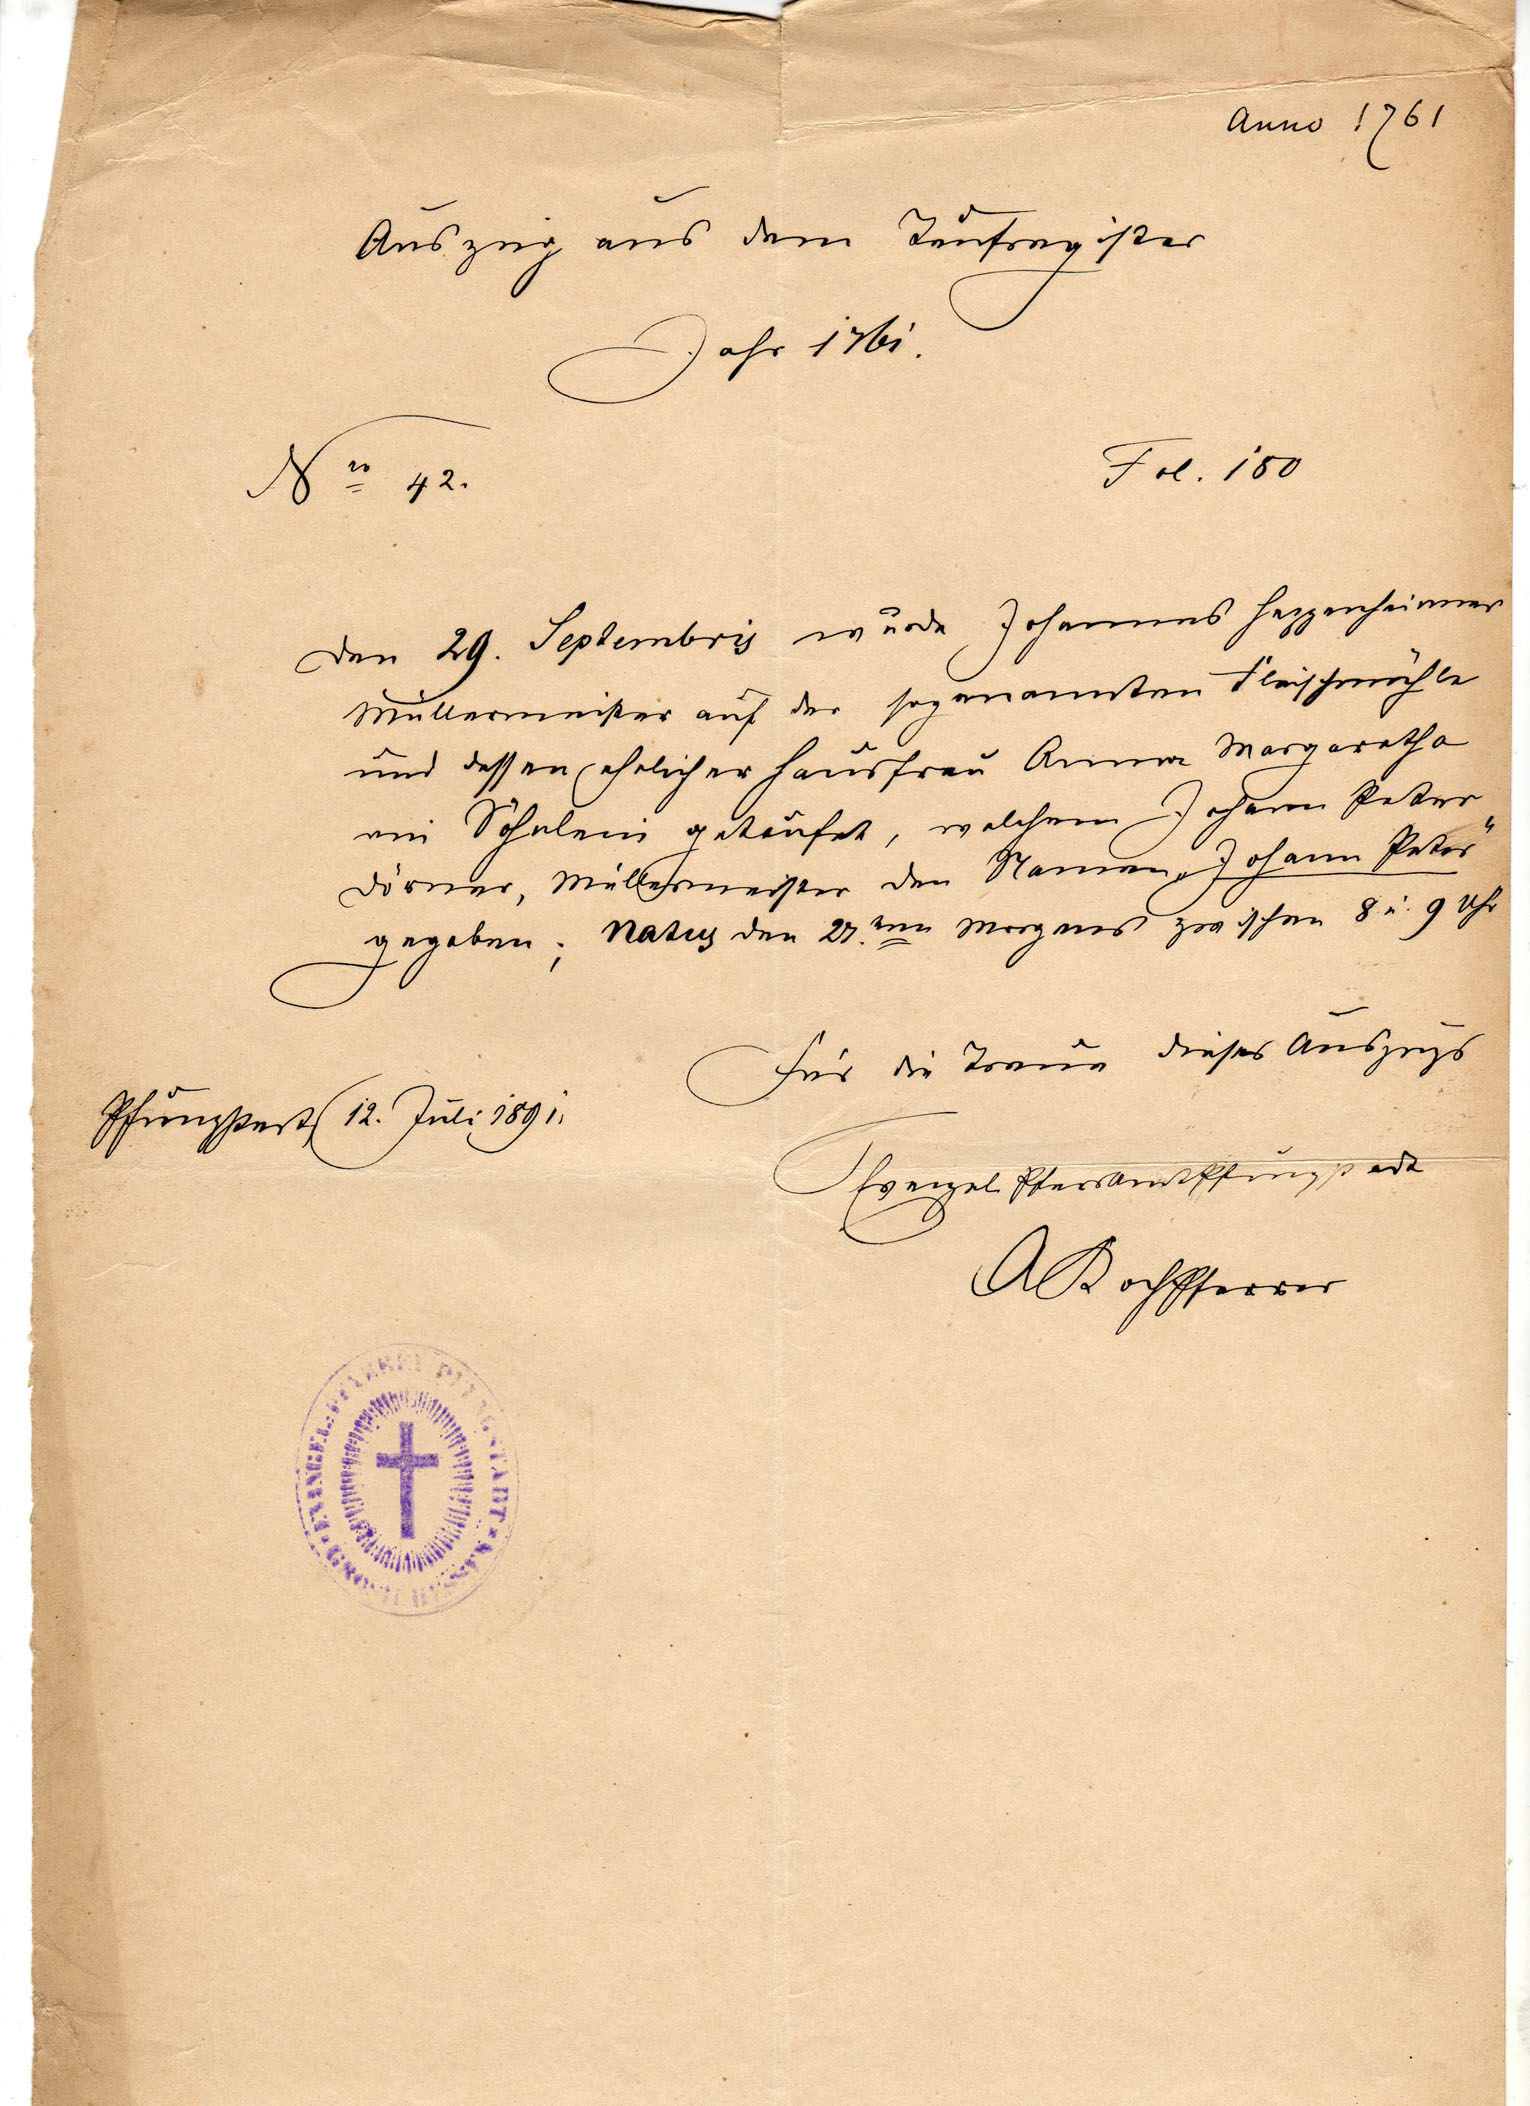 Anno 1761
Auszug aus dem Taufregister
Jahr 1761.
Nro 42.
Fol. 180
Den 29. Septembris wurde Johannes Heppenheimer
Müllermeister auf der sogenannten Fleischmühle
und dessen ehelicher Hausfrau Anna Margaretha
ein Söhnlein getaufet, welchem Johann Peter
Dörner, Müllermeister den Namen „Johann Peter"
gegeben; Natus den 27.ten Morgens zwischen 8 u. 9 Uhr
Für die Treue dieses Auszugs
Pfungstadt 12. Juli 1891.
Evangel. Pfarramt Pfungstadt
A Koch Pfarrer
EVANGEL. PFARREI PFUNGSTADT GROSH. HESSEN